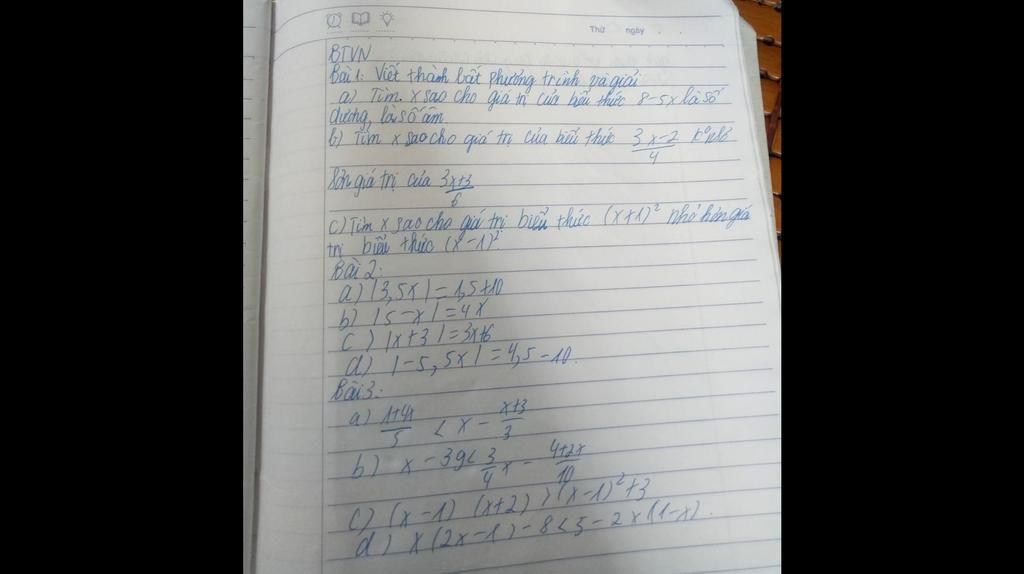 Thứ ngày
BTVN
Bài 1: Viết thành bất phương trình và giải
a) Tìm x sao cho giá trị của biểu thức 8-5x là số
dương, là số âm
b) Tìm x sao cho giá trị của biểu thức \frac{3x-2}{4} k° nhỏ
hơn giá trị của \frac{3x+3}{6}
c) Tìm x sao cho giá trị biểu thức (x+1)² nhỏ hơn giá
trị biểu thức (x-1)².
Bài 2:
a) |3,5x| = 1,5+10
b) |5-x| = 4x
c) |x+3| = 3x+6
d) |-5,5x| = 4,5-10.
Bài 3:
a) \frac{1+4x}{5} < x - \frac{x+3}{3}
b) x - 39 < \frac{3}{4}x - \frac{4+2x}{10}
c) (x-1) (x+2) > (x-1)² + 3
d) x(2x-1) - 8 < 5 - 2x(1-x).